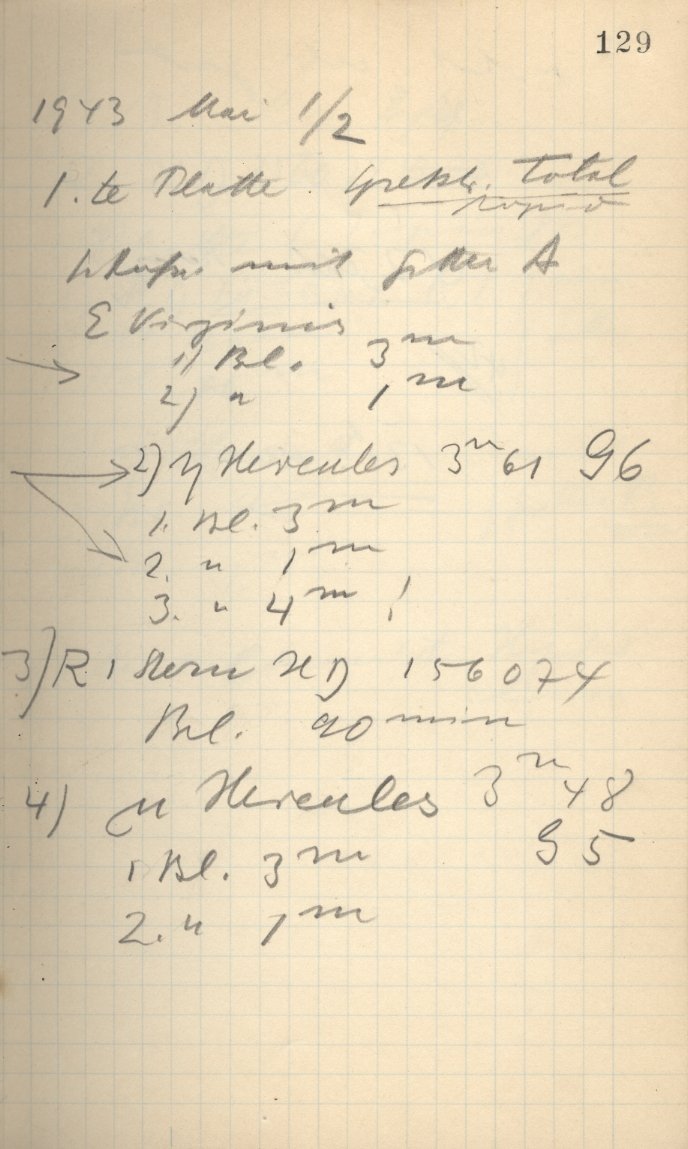 129
1943 Mai 1/2
1. te Platte. Spektr. Total
rapid
mit Gitter A
ε Virginis
1) Bl. 3m
2) " 1m
2) η Hercules 3m61 G6
1. Bl. 3m
2. " 1m
3. " 4m !
3) R 1 Stern HD 156074
Bel. 90 min
4) μ Hercules 3m48
G5
1 Bl. 3m
2. " 1m